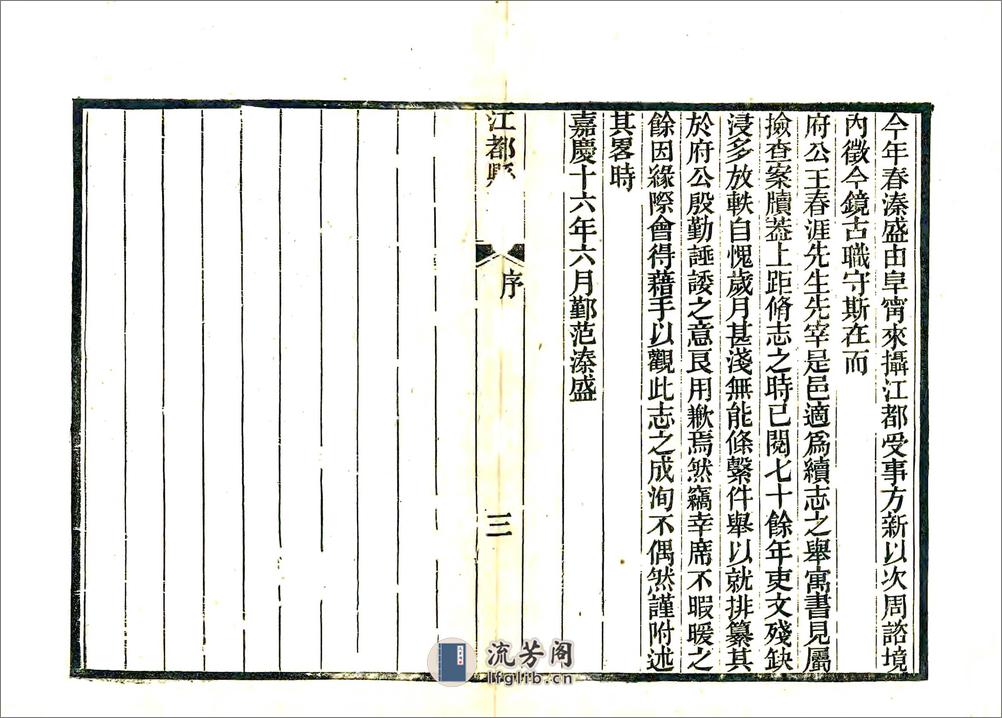 今年春溱盛由阜甯來攝江都受事方新以次周諮境
內徵今鏡古職守斯在而
府公王春涯先生先宰是邑適爲續志之舉寓書見屬
撿查案牘葢上距脩志之時已閱七十餘年吏文殘缺
浸多放軼自愧歲月甚淺無能條繫件舉以就排纂其
於府公殷勤諈諉之意良用歉焉然竊幸席不暇暖之
餘因緣際會得藉手以觀此志之成洵不偶然謹附述
其畧時
嘉慶十六年六月鄞范溱盛
江都縣
序
三
流芳阁
lfglib.cn